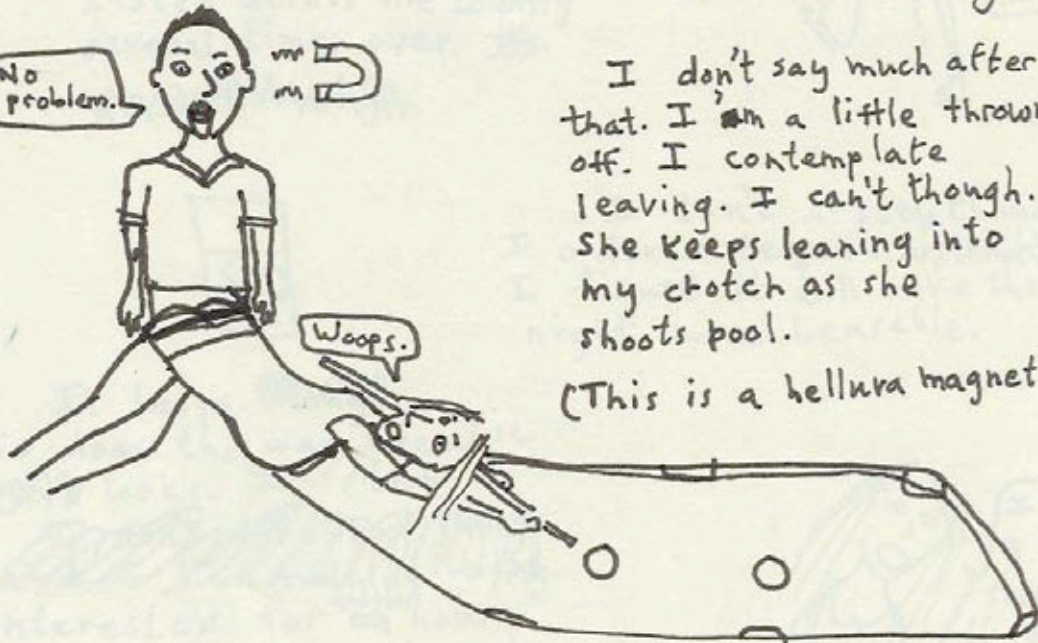 No
problem.
I don't say much after
that. I'm a little thrown
off. I contemplate
leaving. I can't though.
She keeps leaning into
my crotch as she
shoots pool.
(This is a hellura magnet
Woops.